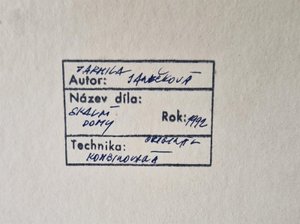 JARMILA
Autor: JANEČKOVÁ
Název díla:
SKALNÍ
DOMY
Rok: 1992
ORIGINÁL
Technika:
KOMBINOVANÁ